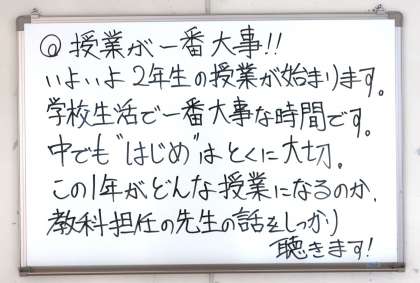 ◎ 授業が一番大事!!
いよいよ2年生の授業が始まります。
学校生活で一番大事な時間です。
中でも"はじめ"はとくに大切。
この1年がどんな授業になるのか、
教科担任の先生の話をしっかり
聴きます!